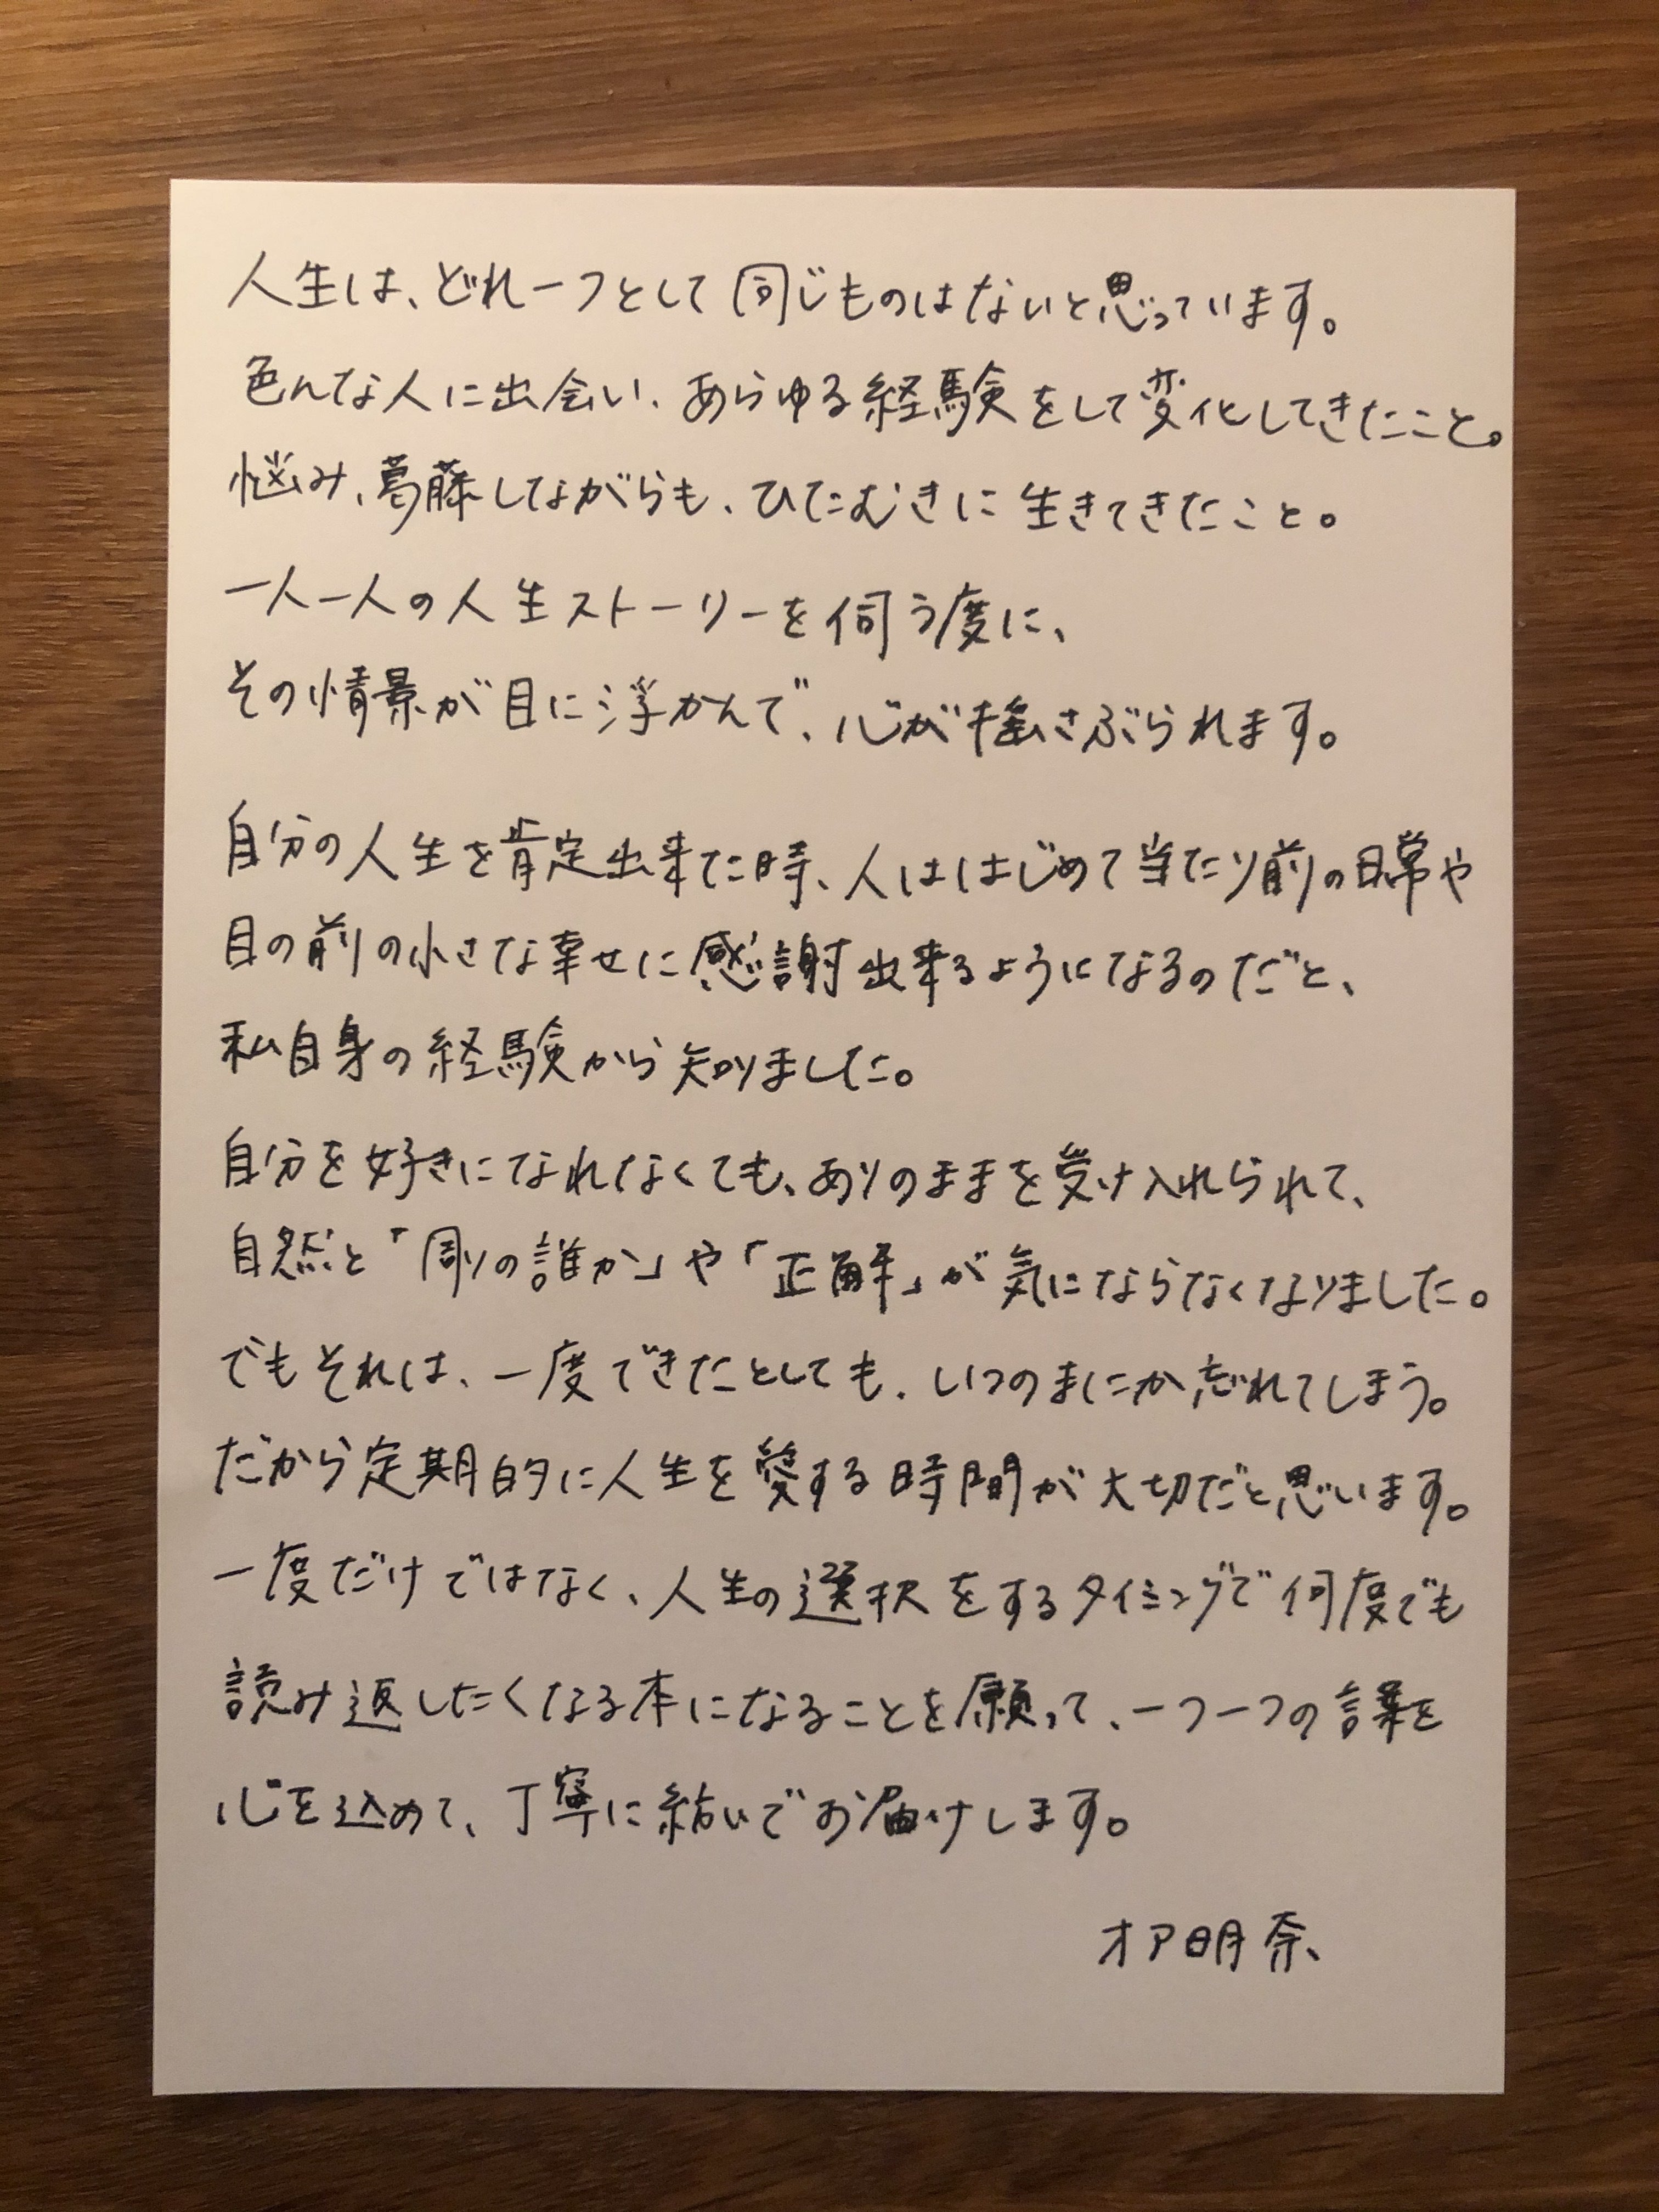 人生は、どれ一つとして同じものはないと思っています。
色んな人に出会い、あらゆる経験をして変化してきたこと。
悩み、葛藤しながらも、ひたむきに生きてきたこと。
一人一人の人生ストーリーを伺う度に、
その情景が目に浮かんで、心が揺さぶられます。
自分の人生を肯定出来た時、人ははじめて当たり前の日常や
目の前の小さな幸せに感謝出来るようになるのだと、
私自身の経験から知りました。
自分を好きになれなくても、ありのままを受け入れられて、
自然と「周りの誰か」や「正解」が気にならなくなりました。
でもそれは、一度できたとしても、いつのまにか忘れてしまう。
だから定期的に人生を愛する時間が大切だと思います。
一度だけではなく、人生の選択をするタイミングで何度でも
読み返したくなる本になることを願って、一つ一つの言葉を
心を込めて、丁寧に紡いでお届けします。
オア明奈